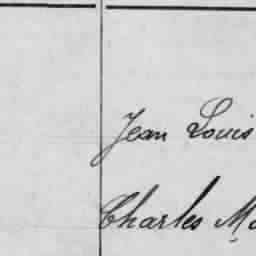 Jean Louis
Charles Ma